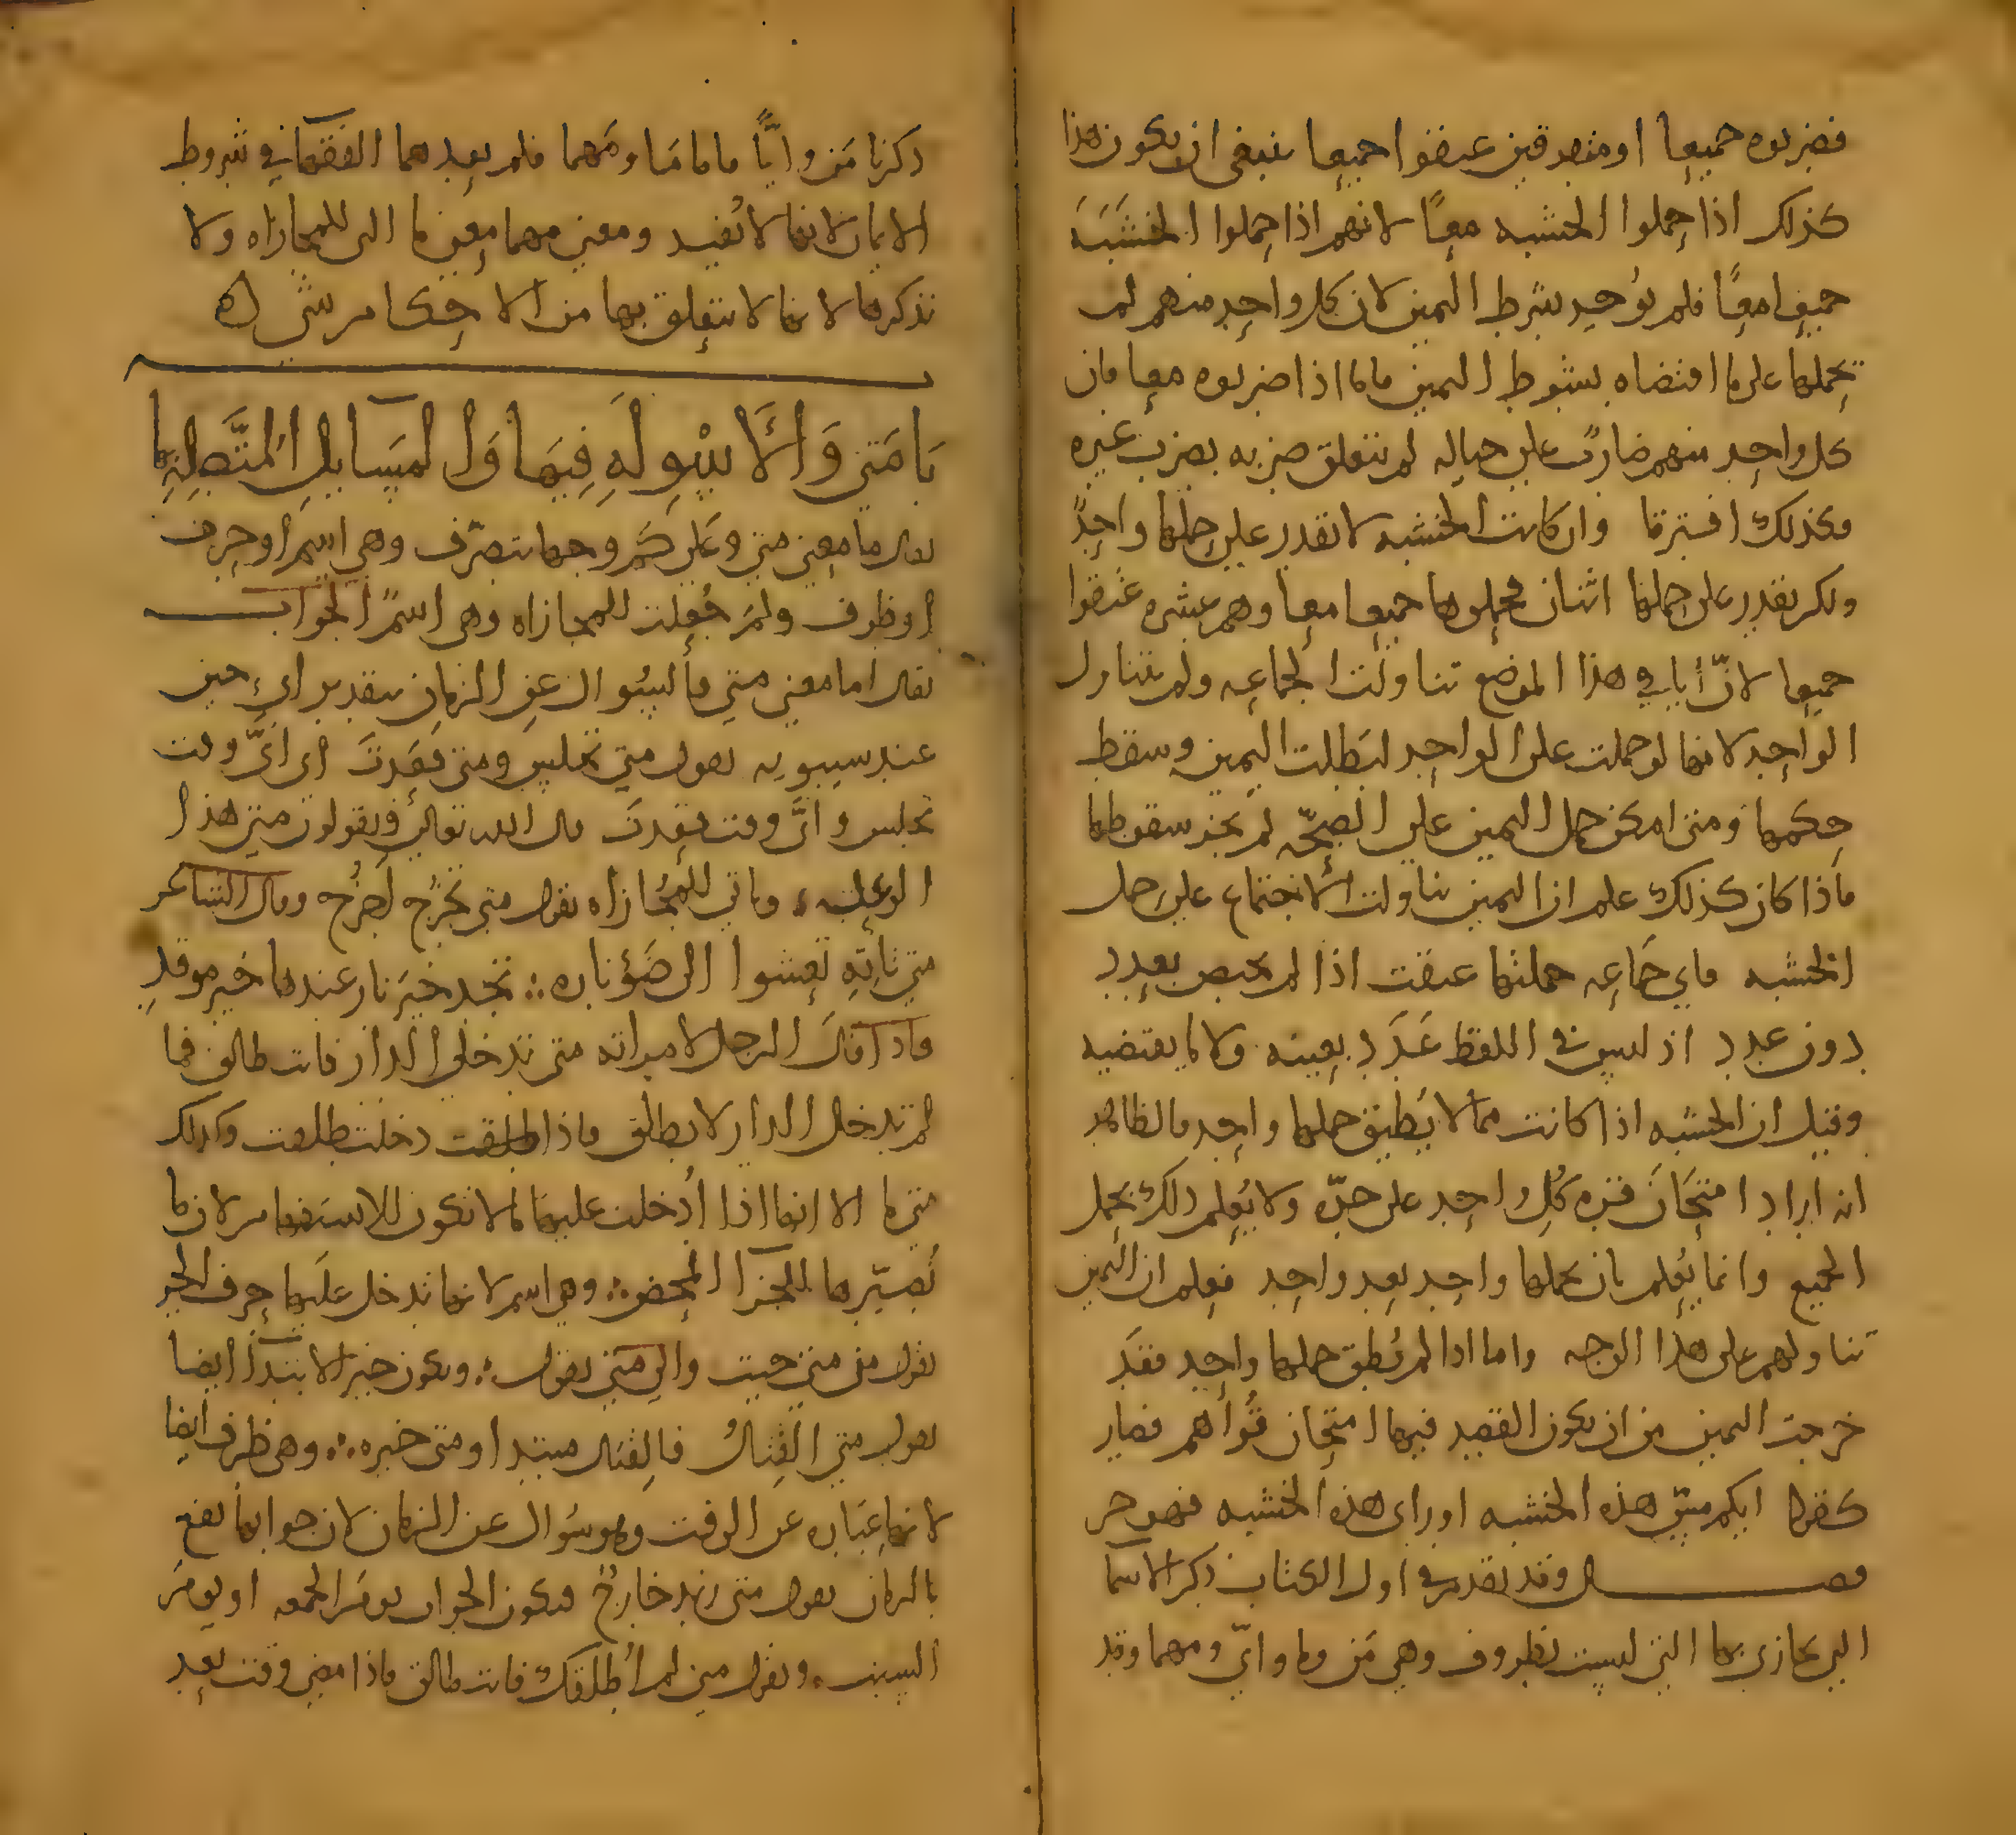 فضربوه جميعا او متفرقين عتقوا جميعا ينبغي ان يكون هذا
كذلك اذا حملوا الخشبه معًا لانهم اذا حملوا الخشَبَه
جميعا معًا فلم يوُجد شرط اليمين لان كل واحد منهم لم
يحملها على ما اقتضاه شرط اليمين فاما اذا ضربوه معا فان
كل واحد منهم ضاربٌ على حياله لم يتعلق ضربه بضرب غيره
فكذلك افترقا وان كانت الخشبه لا يقدر على حملها واحدٌ
ولكن يقدر على حملها اثنان فحملوها جميعا معا وهم عشره عُتقوا
جميعا لانّ أيا في هذا الموضع تناولت الجماعه ولم تتناول
الواحد لانها لو حملت على الواحد لبَطلت اليمين وسقط
حكمها ومتى امكن حمل اليمين على الصحّه لم يجز سقوطها
فاذا كان كذلك علم ان اليمين تناولت الاجتماع على حمل
الخشبه فاي جَماعه حملتها عتقت اذا لم يختص بعدد
دون عدد اذ ليس في اللفظ عَدَد بعينه ولا ما يقتضيه
وقيل ان الخشبه اذا كانت مما لا يُطيق حملها واحد فالظاهر
انه اراد امتحَان قوه كُل واحد على حدّه ولا يُعلم ذلك بحمل
الجميع وانما يُعلم بان يحملها واحد بعد واحد فعلم ان اليمين
تناولهم على هذا الوجه واما اذا لم يُطق حملها واحد فقَد
خرجت اليمين من ان يكون القصد فيها امتحان قُواهم فصار
كقوله ايكم مسّ هذه الخشبه او راى هذه الخشبه فهو حر
فصل وقد تقدم في اول الكتاب ذكر الاسما
التي يجازى بها التي ليست بظروف وهي مَن وما وايّ ومهما وقد
ذكرنا مَن وايًّا فاما مَا ومَهما فلم يعدهما الفقها في شروط
الايمان لانها لا تُفيد ومعنى مهما معنى ما التي للمجازاه ولا
نذكرها لانها لا يتعلق بها من الاحكام شي
بَا مَتى وَالأَسْوِلَهِ فِيهَا وَالمسَايلِ المتَّصِلهِ بها
يقال ما معنى متى وعَلى كَم وجها تتصرّف وهي اسم او حرف
او ظرف ولمَ جُعلت للمجازاه وهي اسمٌ الجواب
يقال اما معنى متى فالسُوال عن الزمان بتقدير اي حين
عند سيبويه يقول متى تجلس ومتى قعَدتَ اي ايَّ وقت
تجلس وايَّ وقت قعدتَ قال الله تعالى ويقولون متى هذا
الوعد وتاتي للمجُازاه يقول متى تخرُج اَخرُج وقال الشاعر
متى تاتِهِ تَعشوا الى ضَوْ ناره تجد خيَر نار عندها خير موقدِ
فاذا قالَ الرجل لامراته متى تدخلى الدار فانت طالق فما
لم تدخل الدار لا يطلق فاذا دخلت طلقت وكذلك
متى ما الا انها اذا أُدخلت عليها ما لا تكون للاستفهام لان ما
تُصيّرها للجزا المحض وهي اسم لانها تدخل عليها حرف الجر
يقول من متى جيت والى متى يقول ويكون خبر الابتدا ايضا
يقول متى القِتالُ فالقتال مبتدا ومتى خبره وهي ظرف ايضا
لانها عبَاره عن الوقت وهو سُوال عن الزمان لان جوابها يقع
بالزمان يقول متى زيد خارجٌ فيكون الجواب يومَ الجمعه او يومَ
السبت ويقول متى لم أُطلقك فانت طالق فاذا مضى وقت بعد